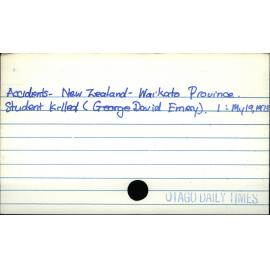 Accidents- New Zealand- Waikato Province.
Student killed (George David Emery). 1: My 19, 1973
OTAGO DAILY TIMES